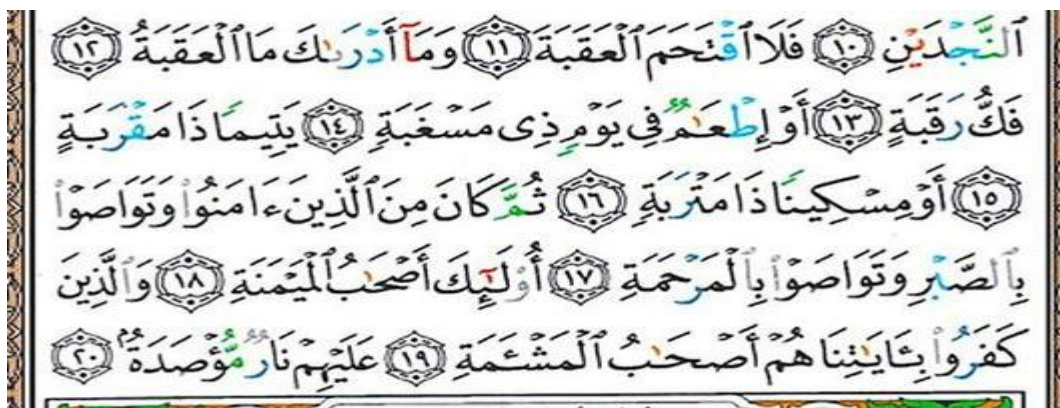 ٱلنَّجْدَيْنِ ١٠ فَلَا ٱقْتَحَمَ ٱلْعَقَبَةَ ١١ وَمَآ أَدْرَىٰكَ مَا ٱلْعَقَبَةُ ١٢
فَكُّ رَقَبَةٍ ١٣ أَوْ إِطْعَٰمٌ فِى يَوْمٍ ذِى مَسْغَبَةٍ ١٤ يَتِيمًا ذَا مَقْرَبَةٍ
١٥ أَوْ مِسْكِينًا ذَا مَتْرَبَةٍ ١٦ ثُمَّ كَانَ مِنَ ٱلَّذِينَ ءَامَنُوا۟ وَتَوَاصَوْا۟
بِٱلصَّبْرِ وَتَوَاصَوْا۟ بِٱلْمَرْحَمَةِ ١٧ أُو۟لَٰٓئِكَ أَصْحَٰبُ ٱلْمَيْمَنَةِ ١٨ وَٱلَّذِينَ
كَفَرُوا۟ بِـَٔايَٰتِنَا هُمْ أَصْحَٰبُ ٱلْمَشْـَٔمَةِ ١٩ عَلَيْهِمْ نَارٌ مُّؤْصَدَةٌۢ ٢٠